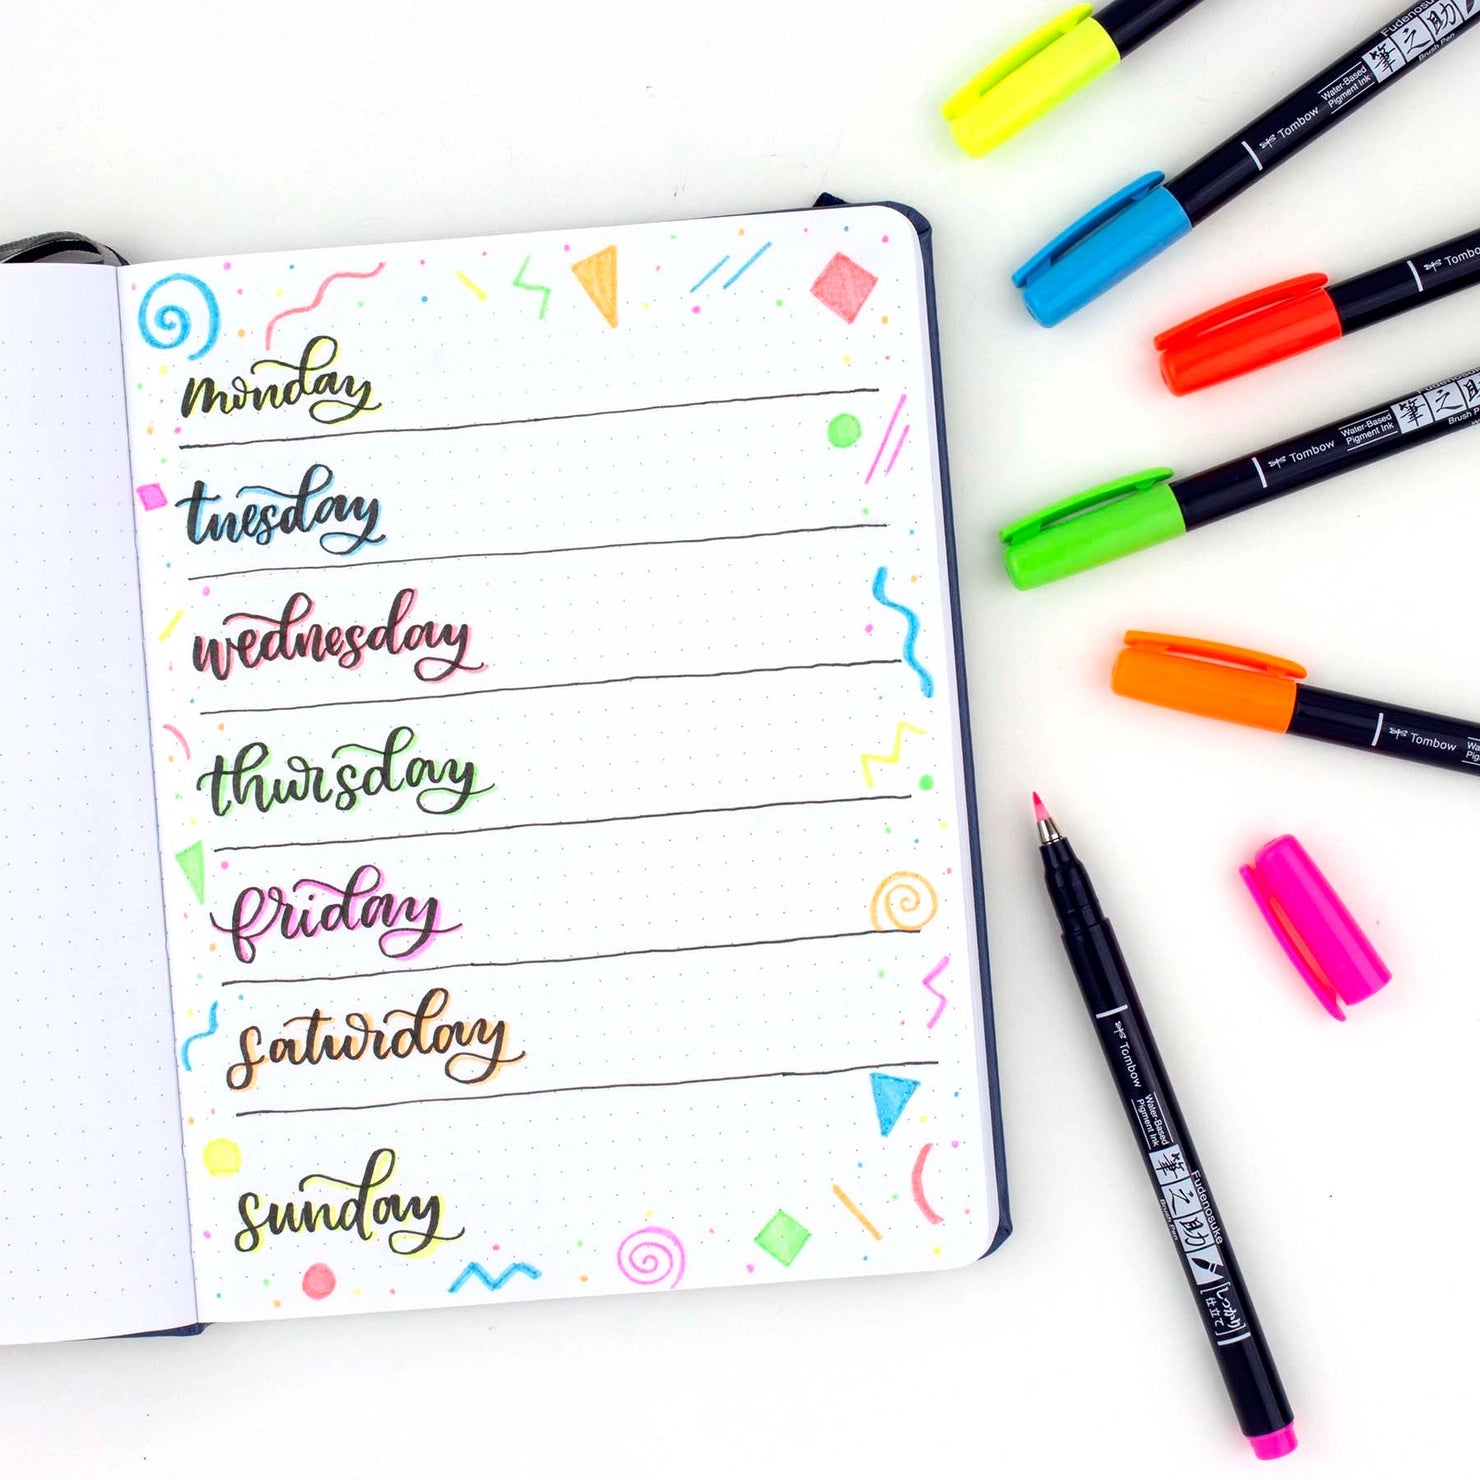 monday
tuesday
wednesday
thursday
friday
saturday
sunday
Tombow
Water-Based
Pigment Ink
筆之助
Fudenosuke
Brush Pen
Tombo
Tombow
Water-Based
Pigment Ink
筆之助
Fudenosuke
Brush P
Tombow
Wa
Pig
Tombow
Water-Based
Pigment Ink
筆之助
Fudenosuke
Brush Pen
しっかり
仕立て